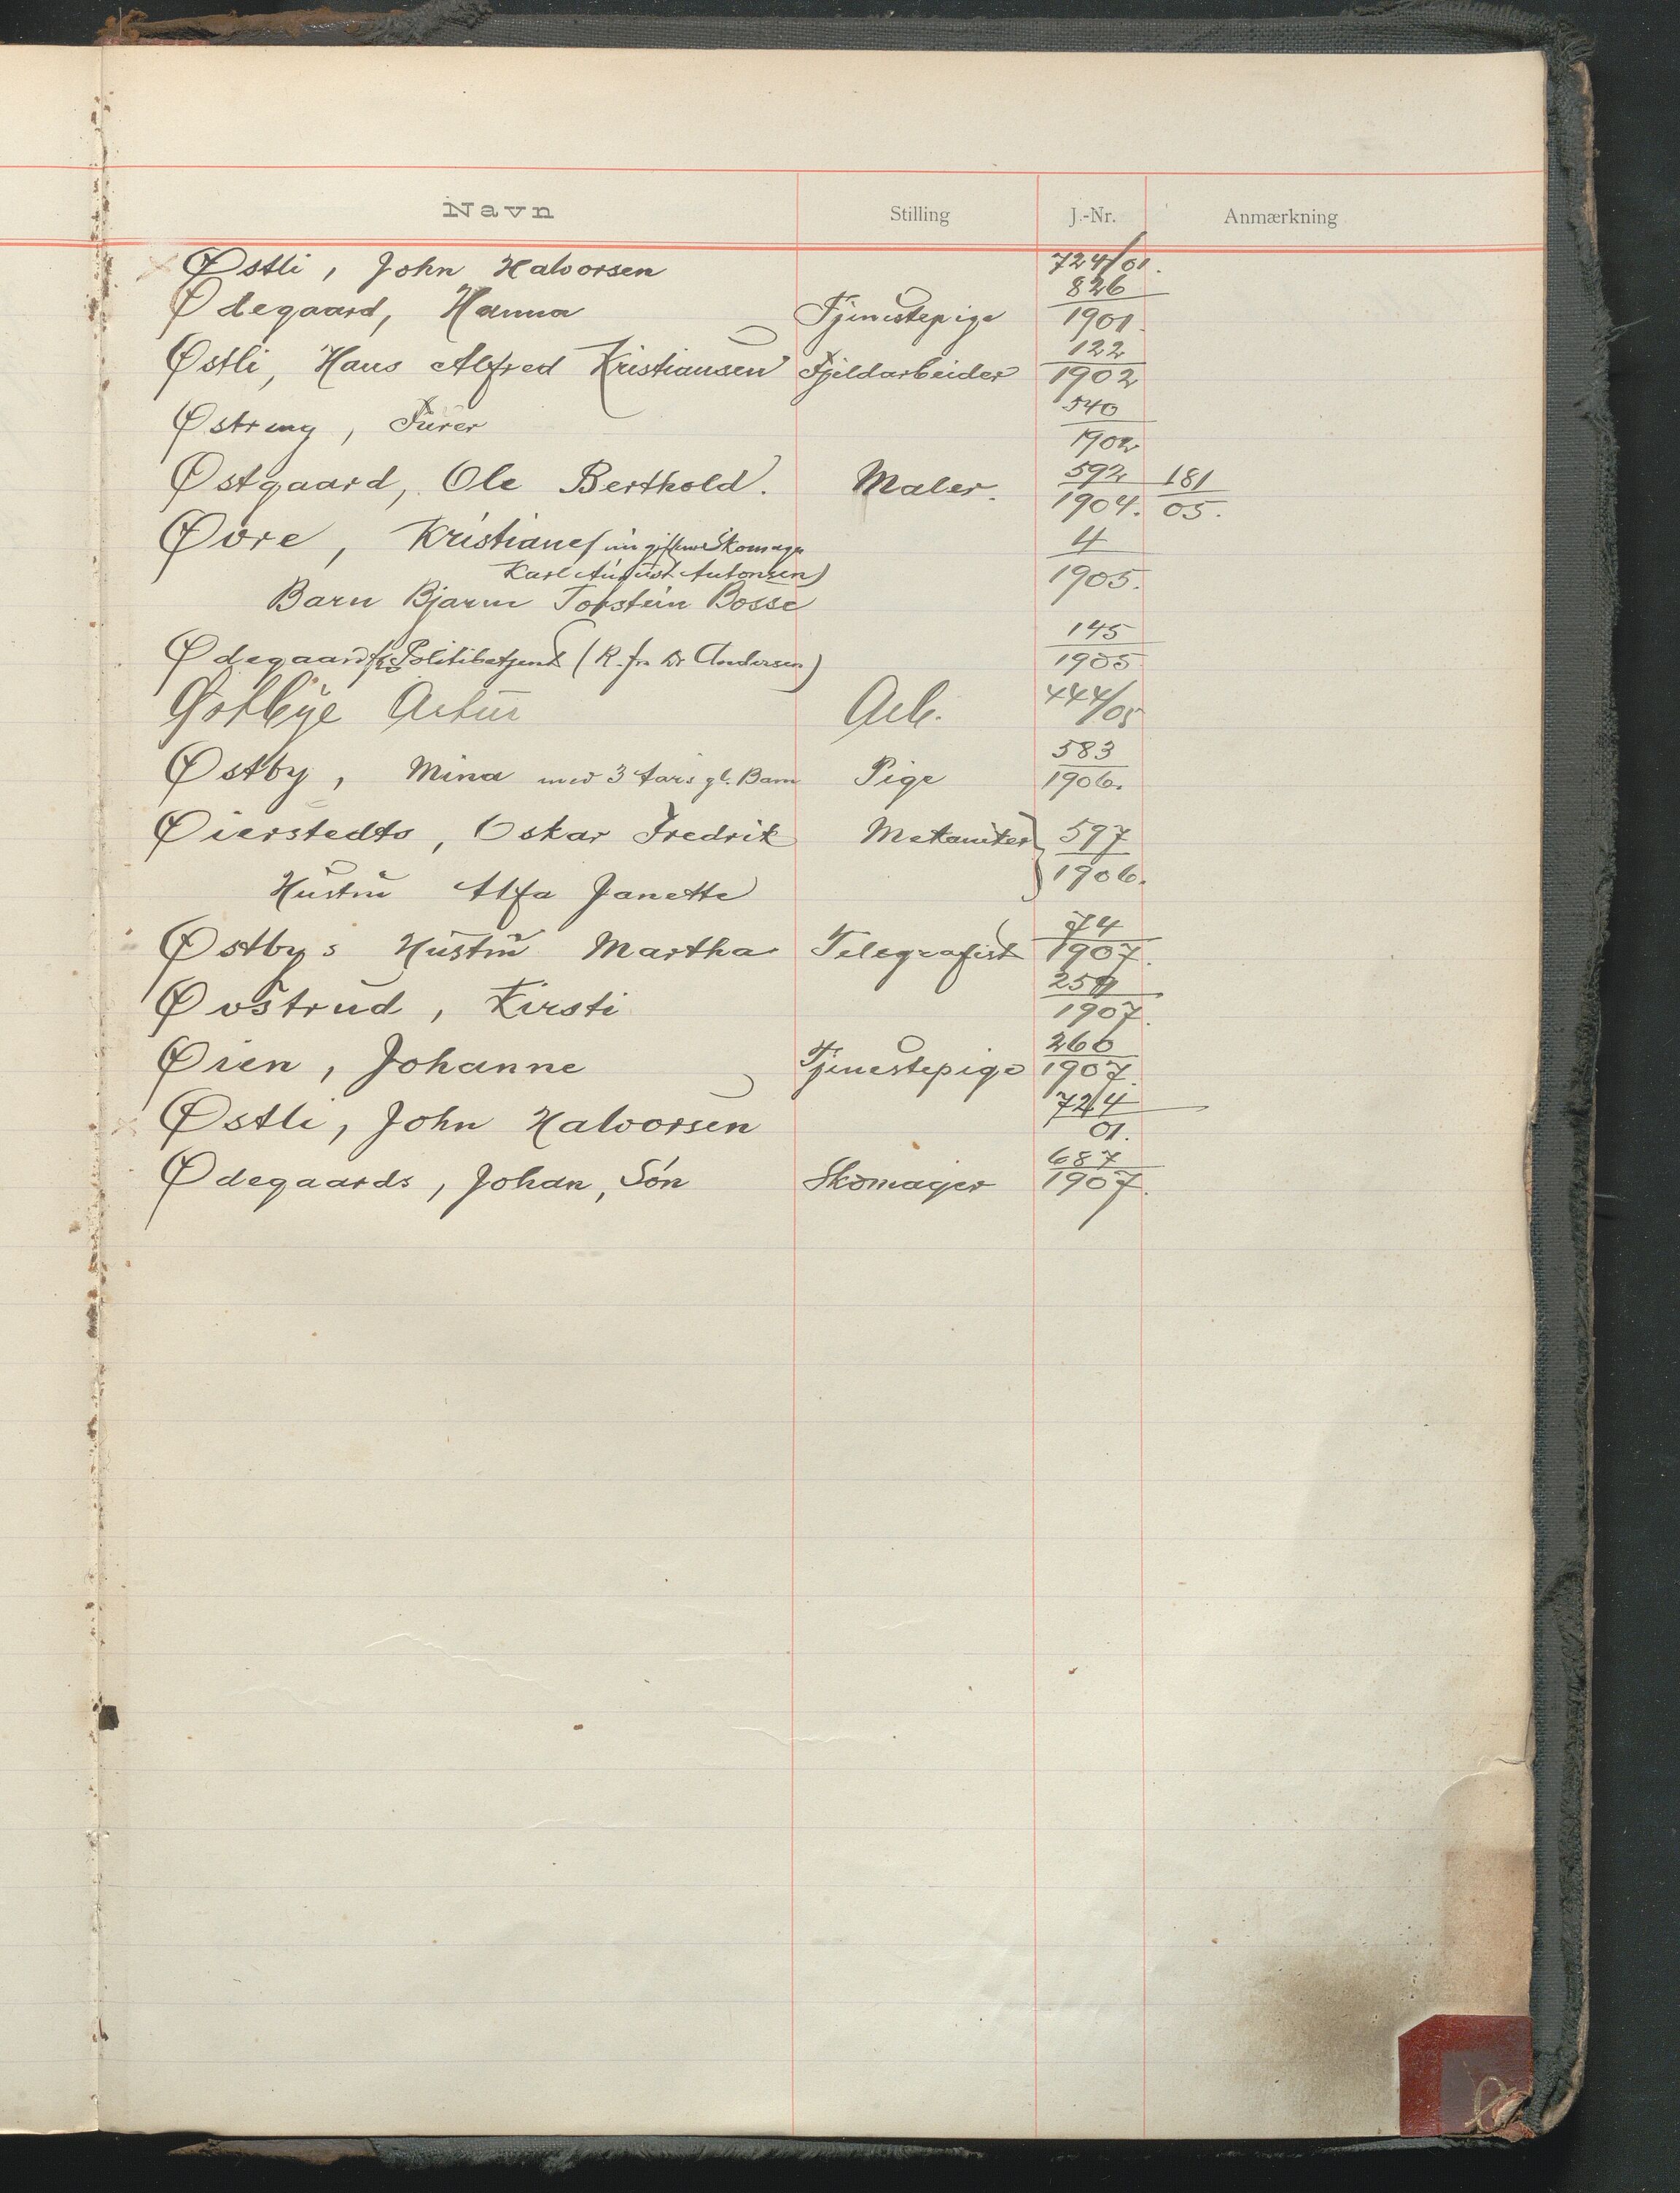 Navn Stilling J.-Nr. Anmærkning
Østli, John Halvorsen 724/01.
Ødegaard, Hanna Tjenestepige 826/1901
Østli, Hans Alfred Kristiansen Fjeldarbeider 122/1902
Østreng, Furer 540/1902
Østgaard, Ole Berthold. Maler. 592/1904. 181/05.
Øvre, Kristiane (nu gift med Skomager 4/1905.
Karl August Antonsen)
Barn Bjarne Torstein Bosse
Ødegaard Politibetjent (R. fra Dr Andersen) 145/1905
Østbye Artur Arb. 444/05
Østby, Mina med 3 Aars gl. Barn Pige 583/1906.
Øierstedts, Oskar Fredrik Mekaniker 597/1906.
Hustru Alfa Janette
Østbys Hustru Martha Telegrafist 74/1907.
Øvstrud, Kirsti 1907.
Øien, Johanne Tjenestepige 266/1907.
Østli, John Halvorsen 724/01.
Ødegaards, Johan, Søn Skomager 687/1907.